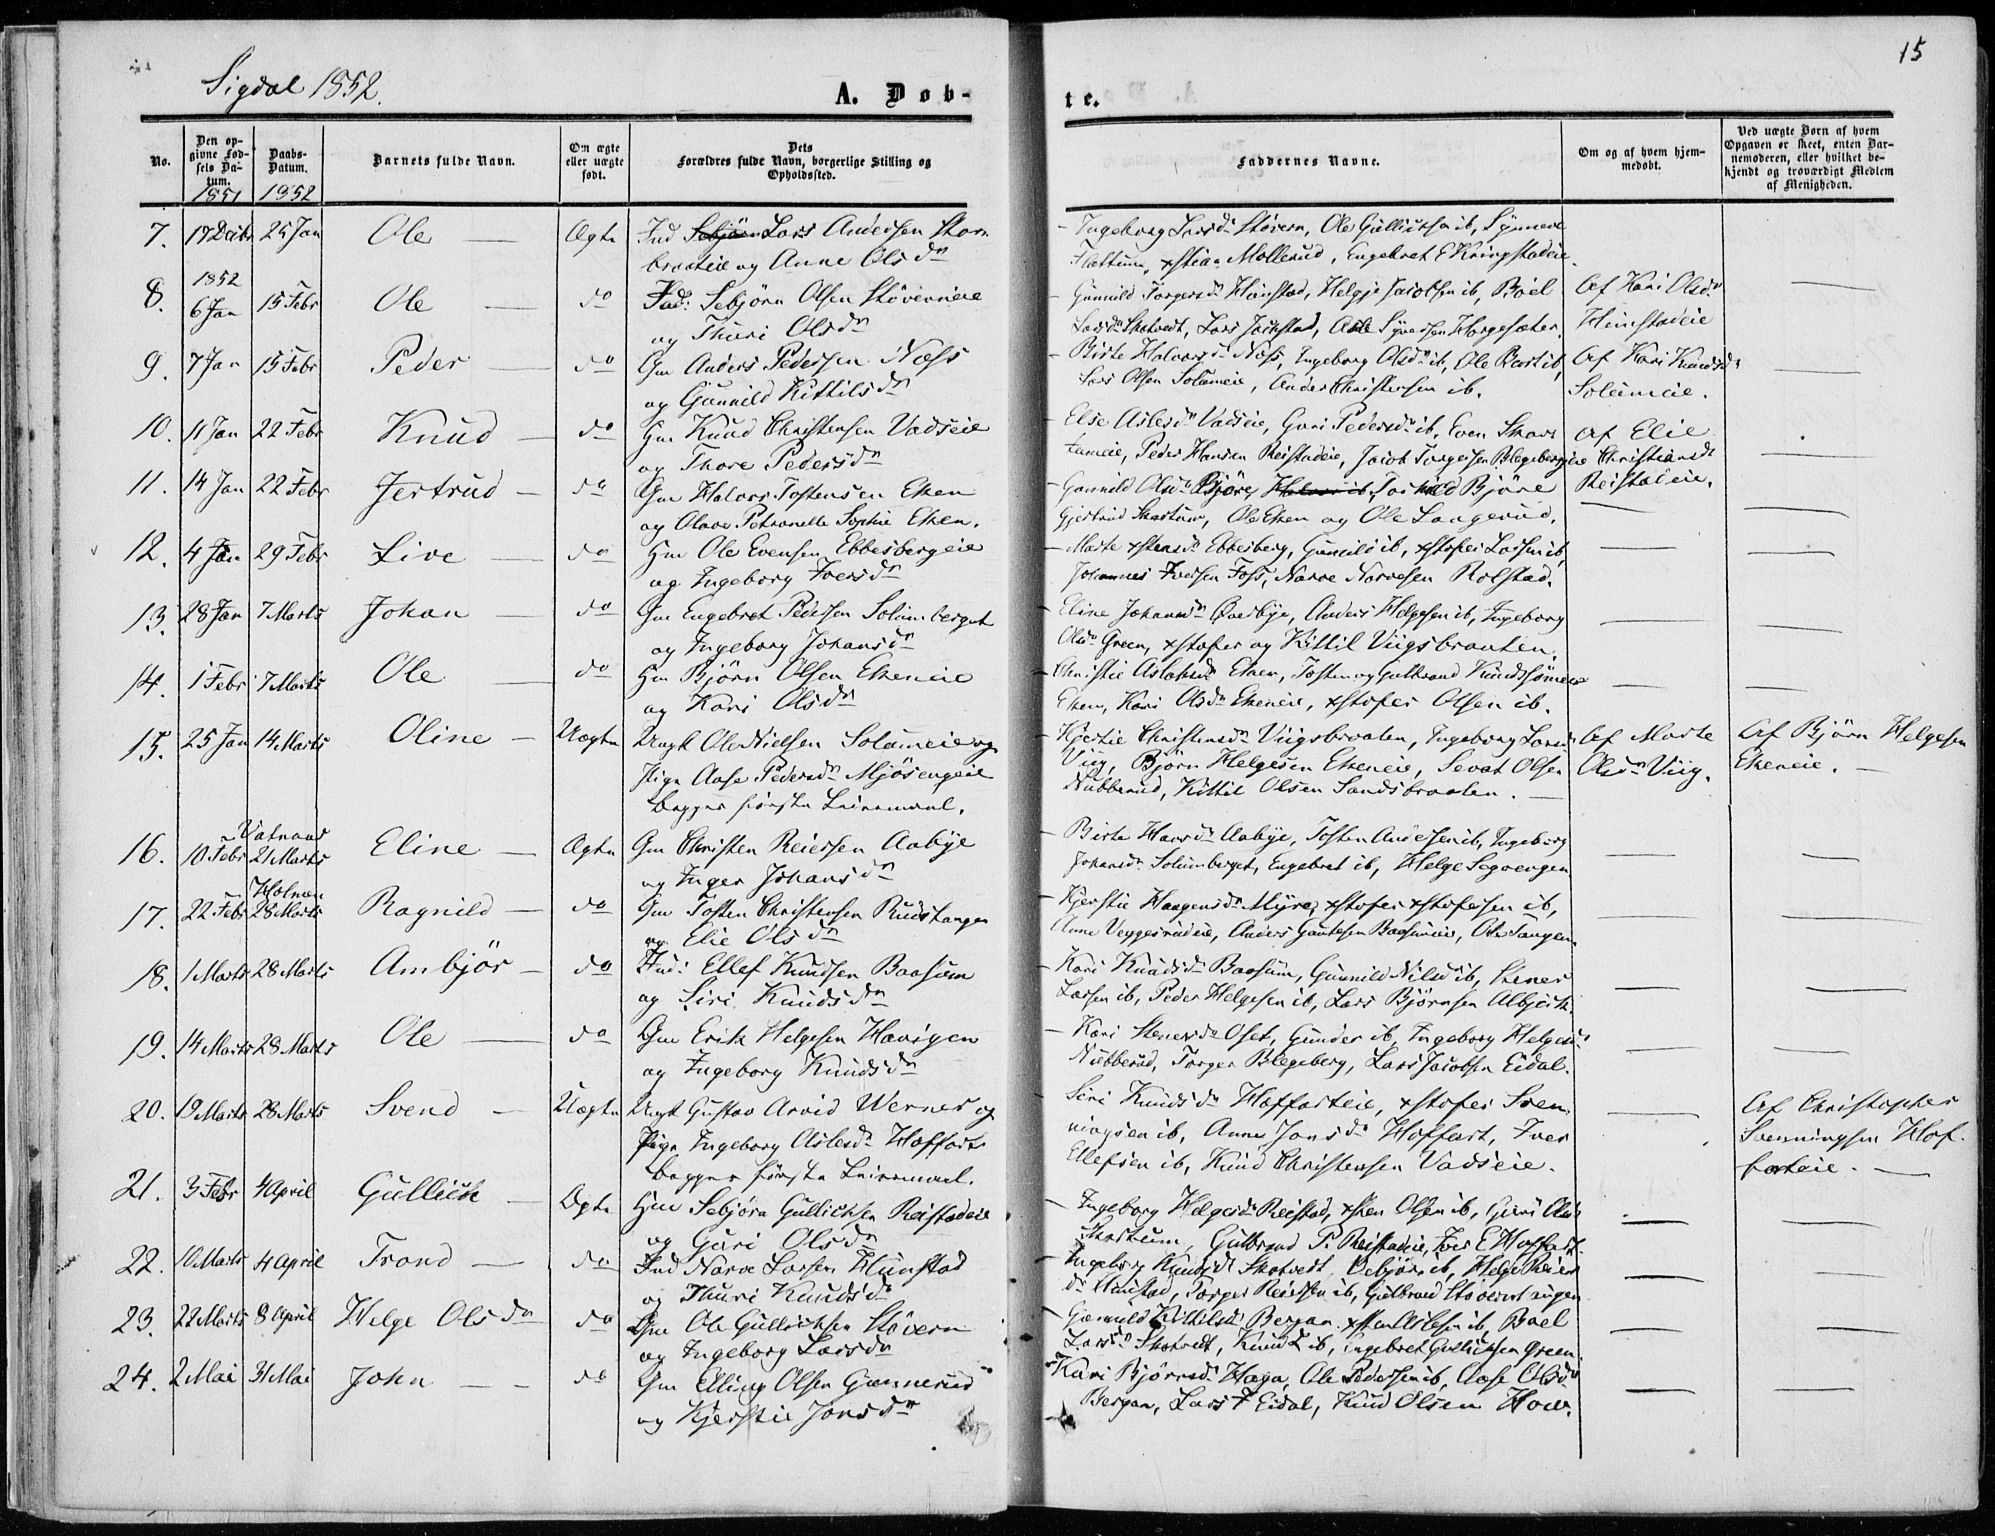 Sigdal 1852.
A. Døb-
te.
15
No.
Den op-
givne Fød-
sels Da-
tum.
1851
Daabs-
Datum.
1852
Barnets fulde Navn.
Om ægte
eller uægte
født.
Dets
Forældres fulde Navn, borgerlige Stilling og
Opholdssted.
Faddernes Navne.
Om og af hvem hjem-
medøbt.
Ved uægte Børn af hvem
Opgaven er skeet, enten Bar-
nemoderen, eller hvilket be-
kjendt og troværdigt Medlem
af Menigheden.
7. 17 Decbr 25 Jan Ole — Ægte Ind Lars Andersen Støvern
braateie og Anne Olsdr
- Ingeborg Larsdr Støvern, Ole Gullicksen ib, Synneve
Mollerud, Engebret E Kringstadeie.
1852
8. 6 Jan 15 Febr Ole — do Ind: Sebjørn Olsen Støverneie
og Thuri Olsdr
- Gunnild Torgersdr Hunstad, Helge Jacobsen ib, Boel
Larsdr Skatvedt, Lars Jackstad, Syversen Horgesæter.
Af Kari Olsdr
Hunstadeie
9. 7 Jan 15 Febr Peder — do Gm Anders Pedersen Næss
og Gunnild Kittilsdr
- Birte Halvorsdr Næss, Ingeborg Olsdr ib, Ole ib,
Lars Olsen Solumeie, Anders Christensen ib.
Af Kari Knudsdr
Solumeie.
10. 11 Jan 22 Febr Knud — do Hm Knud Christensen Vadseie
og Thore Pedersdr
- Else Aslesdr Vadseie, Guri Pedersdr ib, Even Skar-
tumeie, Peder Hansen Reistadeie, Jacob Torgersen Blegebergeie
Af Elie
Christiansdr
Reistadeie.
11. 14 Jan 22 Febr Jertrud — do Gm Halvor Tostensen Eken
og Olave Petronelle Sophie Eken.
- Gunnild Olsdr Bjøre, Bjøre
Gjertrud Skartum, Ole Eken og Ole Laagerud.
12. 4 Jan 29 Febr Live — do Hm Ole Evensen Ebbesbergeie
og Ingeborg Iversdr
- Marte xstensdr Ebbesberg, Gunild ib, xstofer Larsen ib,
Johannes Iversen Foss, Narve Narvesen Rolstad.
13. 28 Jan 7 Marts Johan — do Gm Engebret Pedersen Solumberget
og Ingeborg Johansdr
- Eline Johansdr Overbye, Anders Helgesen ib, Ingeborg
Olsdr Green, xstofer og Kittil Viigsbraaten.
14. 1 Febr 7 Marts Ole — do Hm Bjørn Olsen Ekeneie
og Kari Olsdr
- Christie Aslaksdr Eken, Tosten og Gulbrand
Eken, Kari Olsdr Ekeneie, xstofer Olsen ib.
15. 25 Jan 14 Marts Oline — Uægte Ungk Ole Nielsen Solumeie og
Pige Aase Pedersdr Mjøsengeie
begges første Leiermaal.
- Kjerstie Christensdr Viigsbraaten, Ingeborg Larsdr
Viig, Bjørn Helgesen Ekeneie, Sevat Olsen
Nubberud, Kittil Olsen Sandsbraaten. —
Af Marte
Olsdr Viig.
Af Bjørn Helgesen
Ekeneie. —
Vatnaas
16. 10 Febr 21 Marts Eline — Ægte Gm Christen Reiersen Aabye
og Inger Johansdr
- Birte Hansdr Aabye, Tosten Andersen ib, Ingeborg
Johansdr Solumberget, Engebret ib, Helge
Holmen
17. 22 Febr 28 Marts Ragnild — do Gm Tosten Christensen Rudstangen
og Elie Olsdr
- Kjerstie Haagensdr Myre, xstofer xstofersen ib,
Anne Veggerudeie, Anders Gautesen Baasumeie, Ole Tangen
18. 1 Marts 28 Marts Ambjør — do Ind: Ellef Knudsen Baasum
og Siri Knudsdr
- Kari Knudsdr Baasum, Gunnild Nilsdr ib, Stener
Larsen ib, Peder Helgesen ib, Lars Bjørnsen Albjerk
19. 14 Marts 28 Marts Ole — do Gm Erik Helgesen Haugen
og Ingeborg Knudsdr
- Kari Stenersdr Oset, Gunder ib, Ingeborg Helgesdr
Nubberud, Torger Blegeberg, Lars Jacobsen Eidal.
20. 19 Marts 28 Marts Svend — Uægte Ungk Gustav Arvid Werner og
Pige Ingeborg Aslesdr Hoffart
begges første Leiermaal.
- Siri Knudsdr Hoffarteie, xstofer Sven-
ningsen ib, Anne Jonsdr Hoffart, Iver
Ellefsen ib, Knud Christensen Vadseie.
Af Christopher
Svenningsen Hof-
farteie. —
21. 3 Febr 4 April Gullick — Ægte Hm Sebjørn Gullicksen Reistadeie
og Guri Olsdr
- Ingeborg Helgesdr Reistad, xsten Olsen ib, Guri Olsdr
Skartum, Gulbrand P. Reistadeie, Iver E Hoffart.
22. 10 Marts 4 April Trond — do Ind Narve Larsen Hunstad
og Thuri Knudsdr
- Ingeborg Knudsdr Skatvedt, ib, Helge Reiers-
dr Hunstad, Torger Reiersen ib, Gulbrand
23. 22 Marts 8 April Helge Olsdr do Gm Ole Gullicksen Støvern
og Ingeborg Larsdr
- Gunnild Kittilsdr Bergan, ib, Boel
Larsdr Skatvedt, Knud L ib, Engebret Gullicksen Green.
24. 2 Mai 31 Mai John — do Gm Elling Olsen Gunnerud
og Kjerstie Jonsdr
- Kari Bjørnsdr Haga, Ole Pedersen ib, Aase Olsdr
Bergan, Lars Eidal, Knud Olsen Hovr.